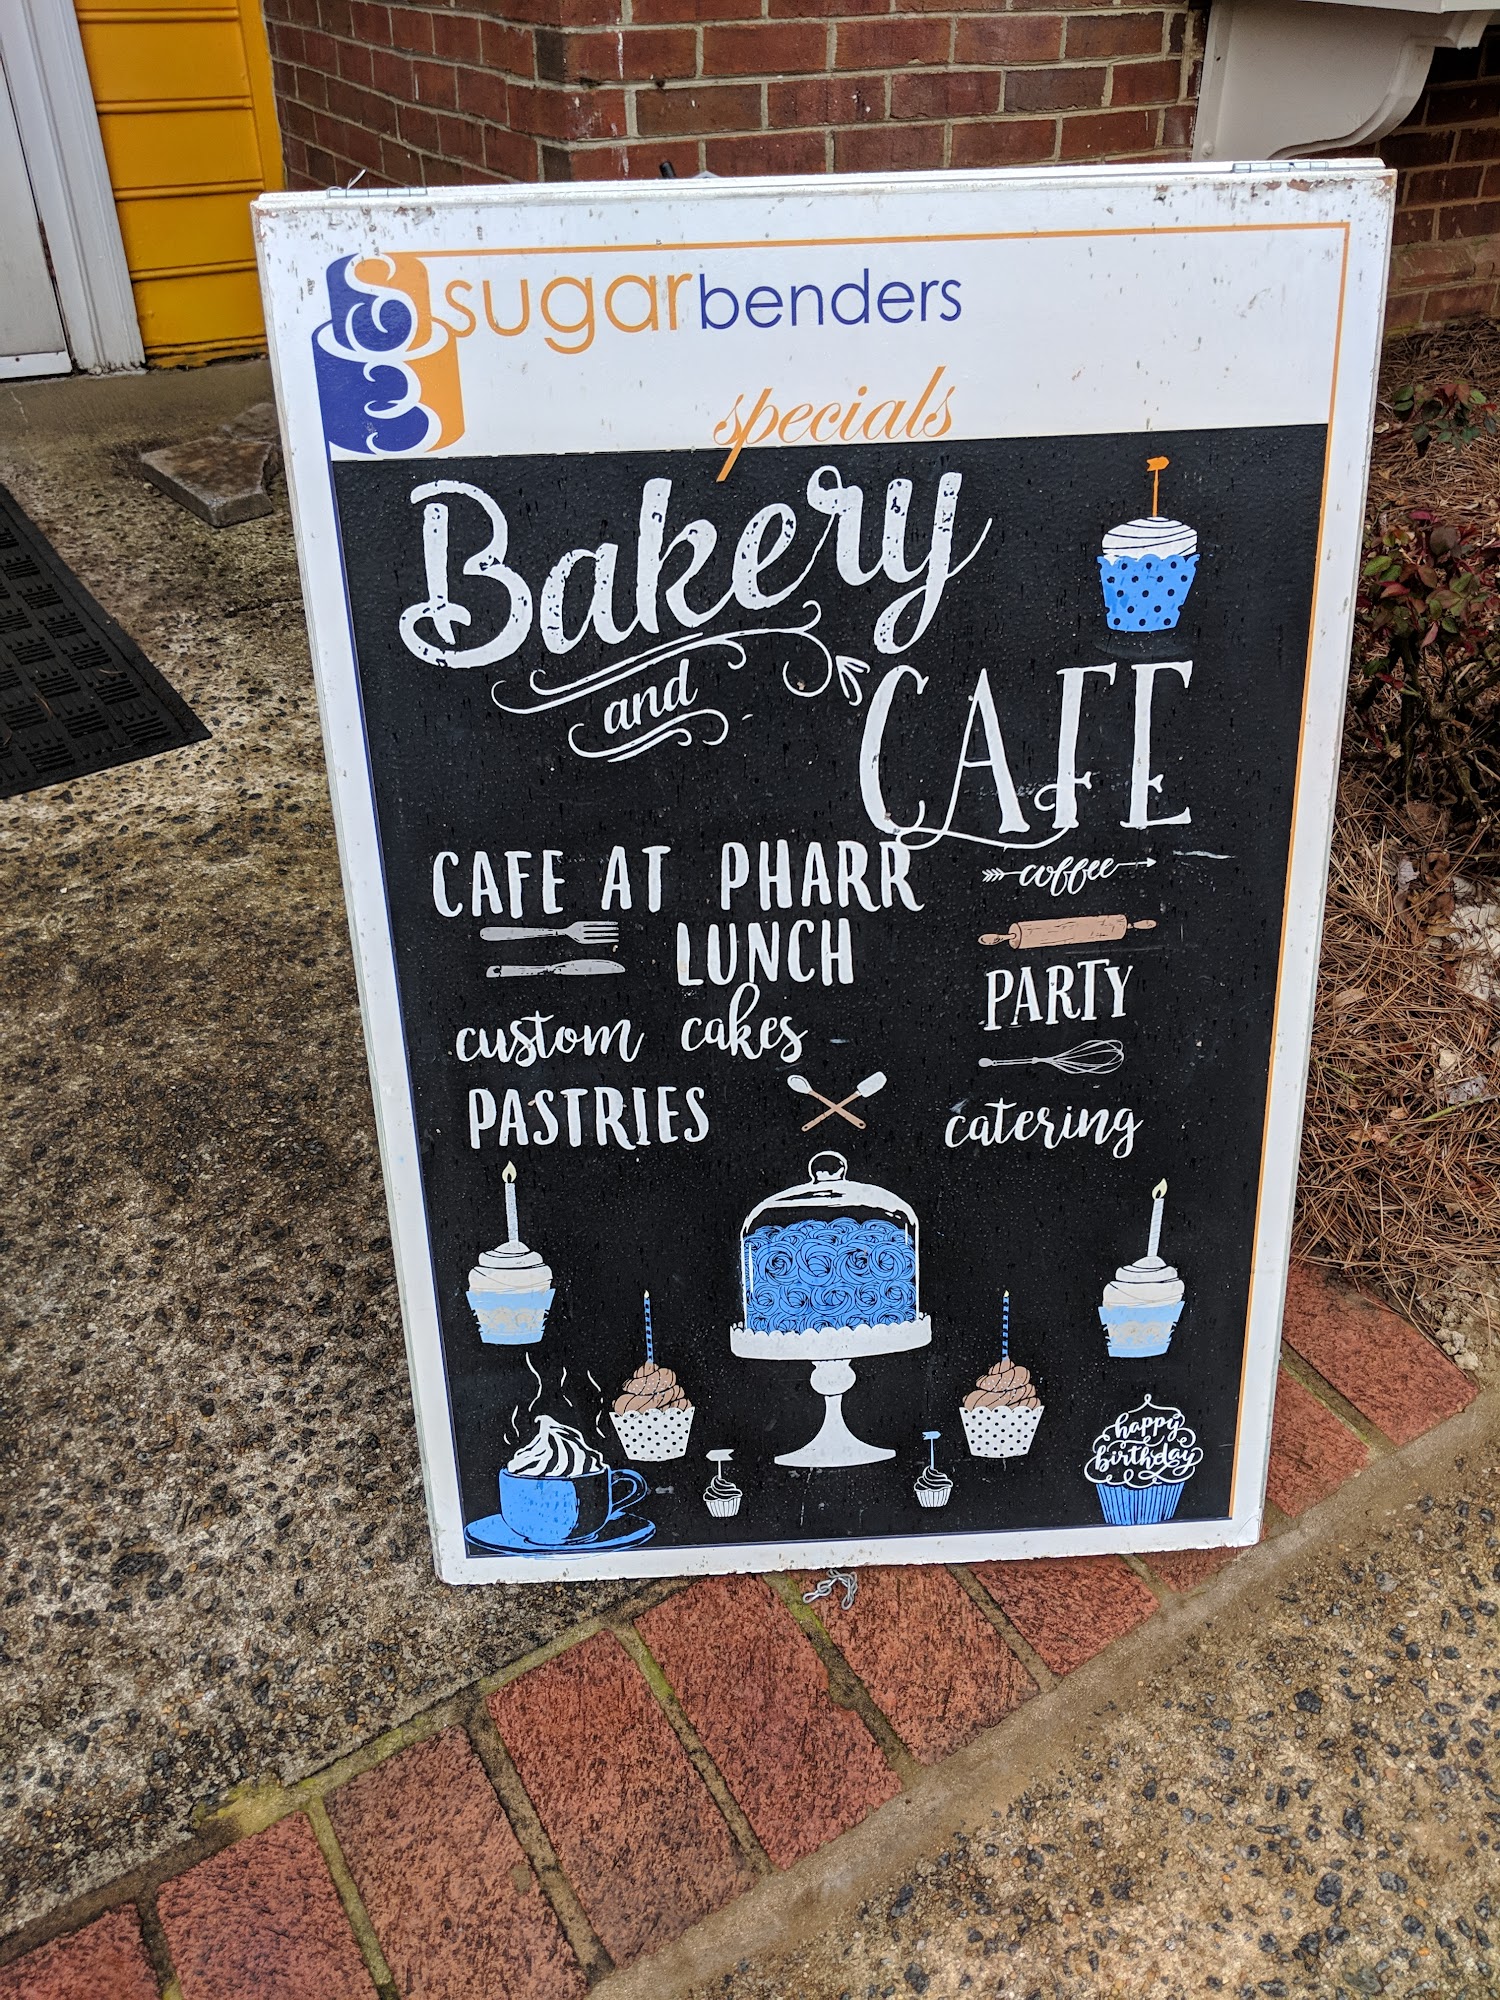 sugarbenders
specials
Bakery
and
CAFE
CAFE AT PHARR
coffee
LUNCH
PARTY
custom cakes
PASTRIES
catering
happy
birthday